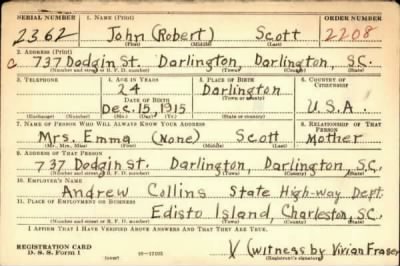 SERIAL NUMBER 1. NAME (Print) ORDER NUMBER
2362 John (Robert) Scott 2208
(First) (Middle) (Last)
2. ADDRESS (Print)
C 737 Dodgin St. Darlington Darlington, S.C.
(Number and street or R. F. D. number) (Town) (County) (State)
3. TELEPHONE 4. AGE IN YEARS 5. PLACE OF BIRTH 6. COUNTRY OF CITIZENSHIP
24 Darlington
DATE OF BIRTH (Town or county)
Dec. 15, 1915 U.S.A.
(Exchange) (Number) (Mo.) (Day) (Yr.) (State or country)
7. NAME OF PERSON WHO WILL ALWAYS KNOW YOUR ADDRESS 8. RELATIONSHIP OF THAT PERSON
Mrs. Emma (None) Scott Mother
(Mr., Mrs., Miss) (First) (Middle) (Last)
9. ADDRESS OF THAT PERSON
737 Dodgin St. Darlington, Darlington, S.C.
(Number and street or R. F. D. number) (Town) (County) (State)
10. EMPLOYER'S NAME
Andrew Collins State High-way Dept.
11. PLACE OF EMPLOYMENT OR BUSINESS
Edisto Island, Charleston, S.C.
(Number and street or R. F. D. number) (Town) (County) (State)
I AFFIRM THAT I HAVE VERIFIED ABOVE ANSWERS AND THAT THEY ARE TRUE.
REGISTRATION CARD
D. S. S. Form 1 (over) X (witness by Vivian Fraser
(Registrant's signature)